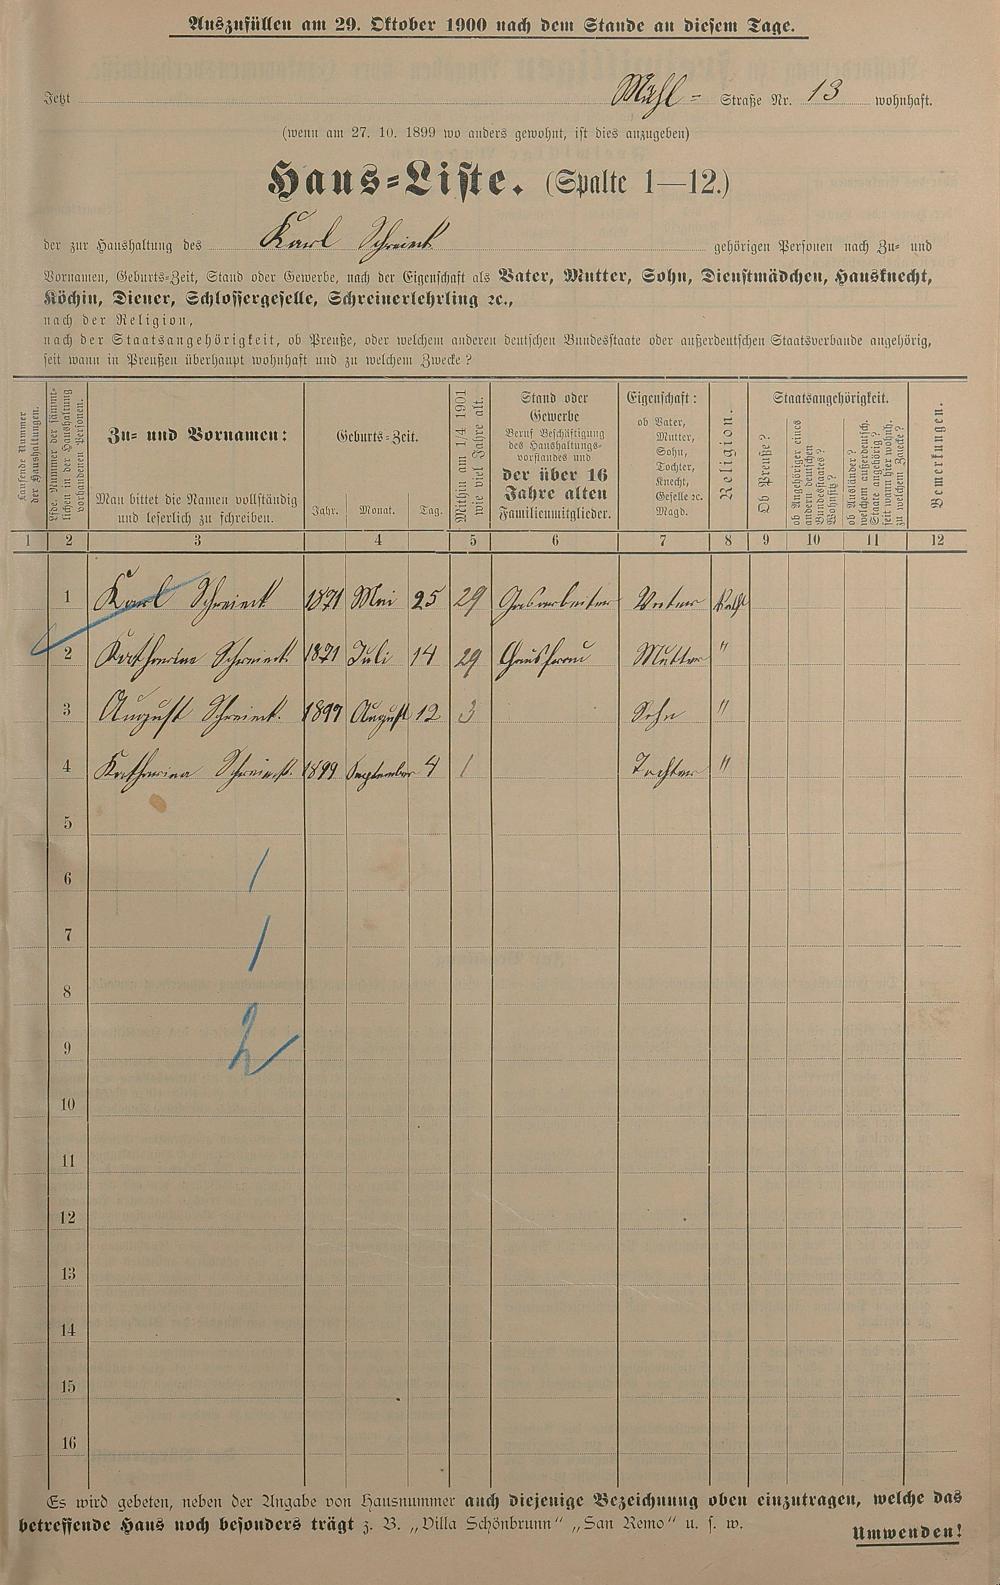 Auszufüllen am 29. Oktober 1900 nach dem Stande an diesem Tage.
Jetzt Mühl= Straße Nr. 13 wohnhaft.
(wenn am 27. 10. 1899 wo anders gewohnt, ist dies anzugeben)
Haus=Liste. (Spalte 1—12.)
der zur Haushaltung des Karl Schreieck gehörigen Personen nach Zu= und
Vornamen, Geburts=Zeit, Stand oder Gewerbe, nach der Eigenschaft als Vater, Mutter, Sohn, Dienstmädchen, Hausknecht,
Köchin, Diener, Schlossergeselle, Schreinerlehrling ꝛc.,
nach der Religion,
nach der Staatsangehörigkeit, ob Preuße, oder welchem anderen deutschen Bundesstaate oder außerdeutschen Staatsverbande angehörig,
seit wann in Preußen überhaupt wohnhaft und zu welchem Zwecke?
Laufende Nummer der Haushaltungen.
Lfde. Nummer der sämmt=lichen in der Haushaltung vorhandenen Personen.
Zu= und Vornamen:
Man bittet die Namen vollständig
und leserlich zu schreiben.
Geburts=Zeit.
Jahr. Monat. Tag.
Mithin am 1/4 1901 wie viel Jahre alt.
Stand oder
Gewerbe
Beruf Beschäftigung
des Haushaltungs=
vorstandes und
der über 16
Jahre alten
Familienmitglieder.
Eigenschaft:
ob Vater,
Mutter,
Sohn,
Tochter,
Knecht,
Geselle ꝛc.
Magd.
Religion.
Staatsangehörigkeit.
Ob Preuße?
ob Angehöriger eines andern deutschen Bundesstaates? Wohnsitz?
ob Ausländer? welchem außerdeutsch. Staate angehörig? seit wann hier wohnh. zu welchem Zwecke?
Bemerkungen.
1 2 3 4 5 6 7 8 9 10 11 12
1 Karl Schreieck 1871 Mai 25 29 Gasarbeiter Vater Kath
2 Katharina Schreieck 1871 Juli 14 29 Hausfrau Mutter "
3 August Schreieck. 1897 August 12 3 Sohn "
4 Katharina Schreieck. 1899 September 4 1 Tochter "
5
6 1
7 1
8
9 2
10
11
12
13
14
15
16
Es wird gebeten, neben der Angabe von Hausnummer auch diejenige Bezeichnung oben einzutragen, welche das
betreffende Haus noch besonders trägt z. B. „Villa Schönbrunn“ „San Remo“ u. s. w.
Umwenden!